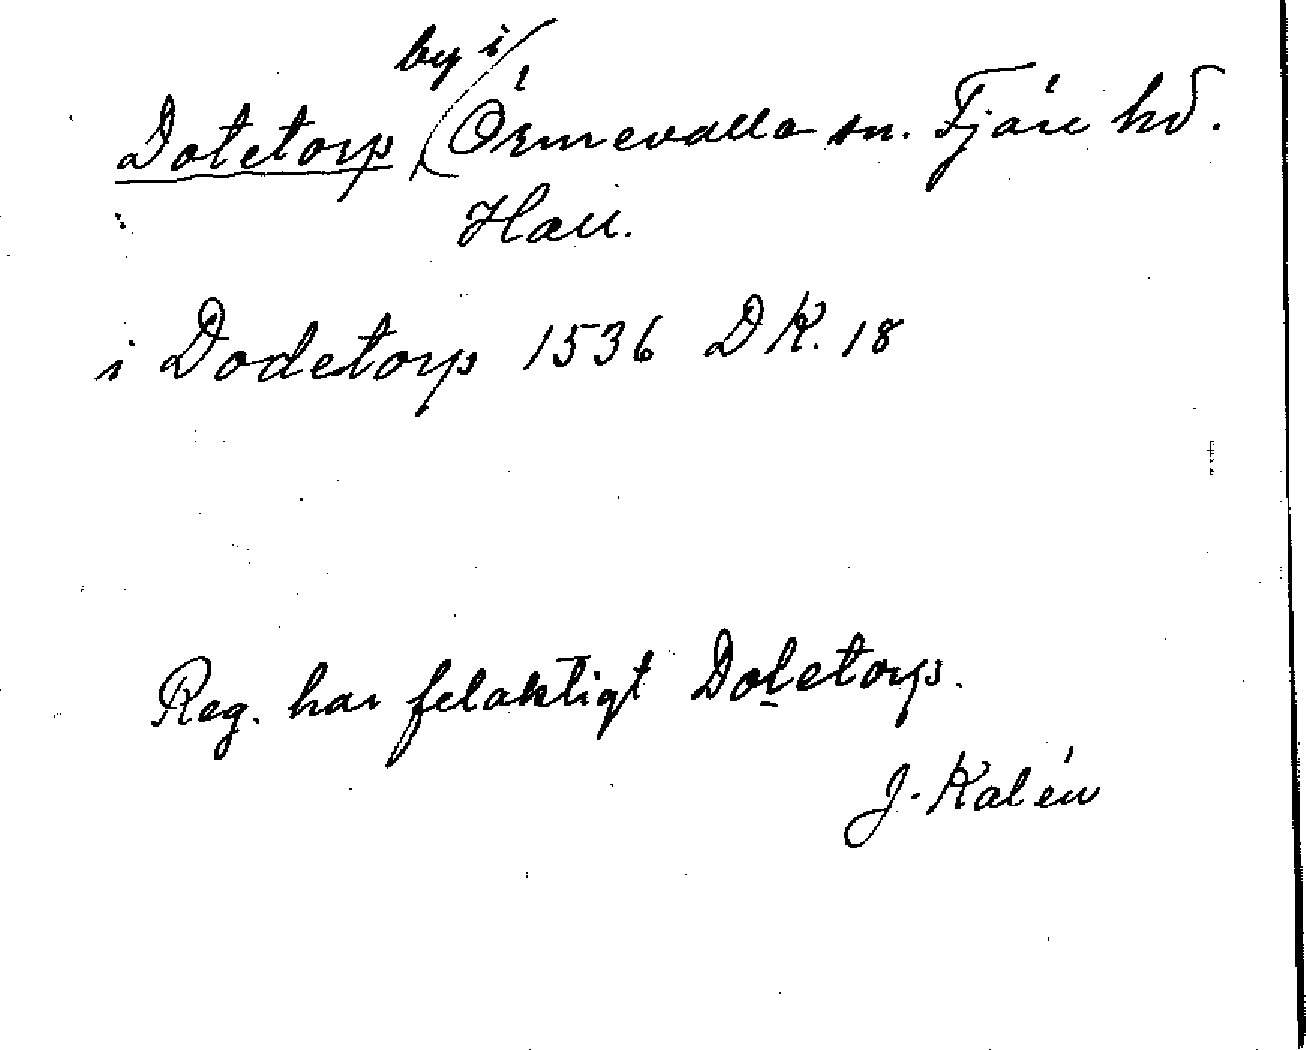 Dotetorp by i Örmevalla sn. Fjäre hd.
Hall.
i Dodetorp 1536 DK. 18
Reg. har felaktigt Doletorp.
J. Kalén